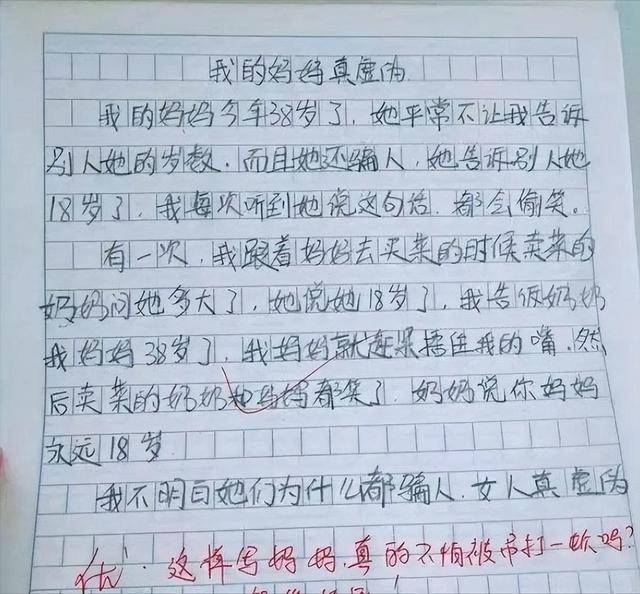 我的妈妈真虚伪
我的妈妈今年38岁了，她平常不让我告诉
别人她的岁数，而且她还骗人，她告诉别人她
18岁了，我每次听到她说这句话，都会偷笑。
有一次，我跟着妈妈去买菜的时候卖菜的
奶奶问她多大了，她说她18岁了，我告诉奶奶
我妈妈38岁了，我妈妈就赶紧捂住我的嘴，然
后卖菜的奶奶和妈妈都笑了，奶奶说你妈妈
永远18岁
我不明白她们为什么都骗人，女人真虚伪
优！这样写妈妈，真的不怕被吊打一顿吗？